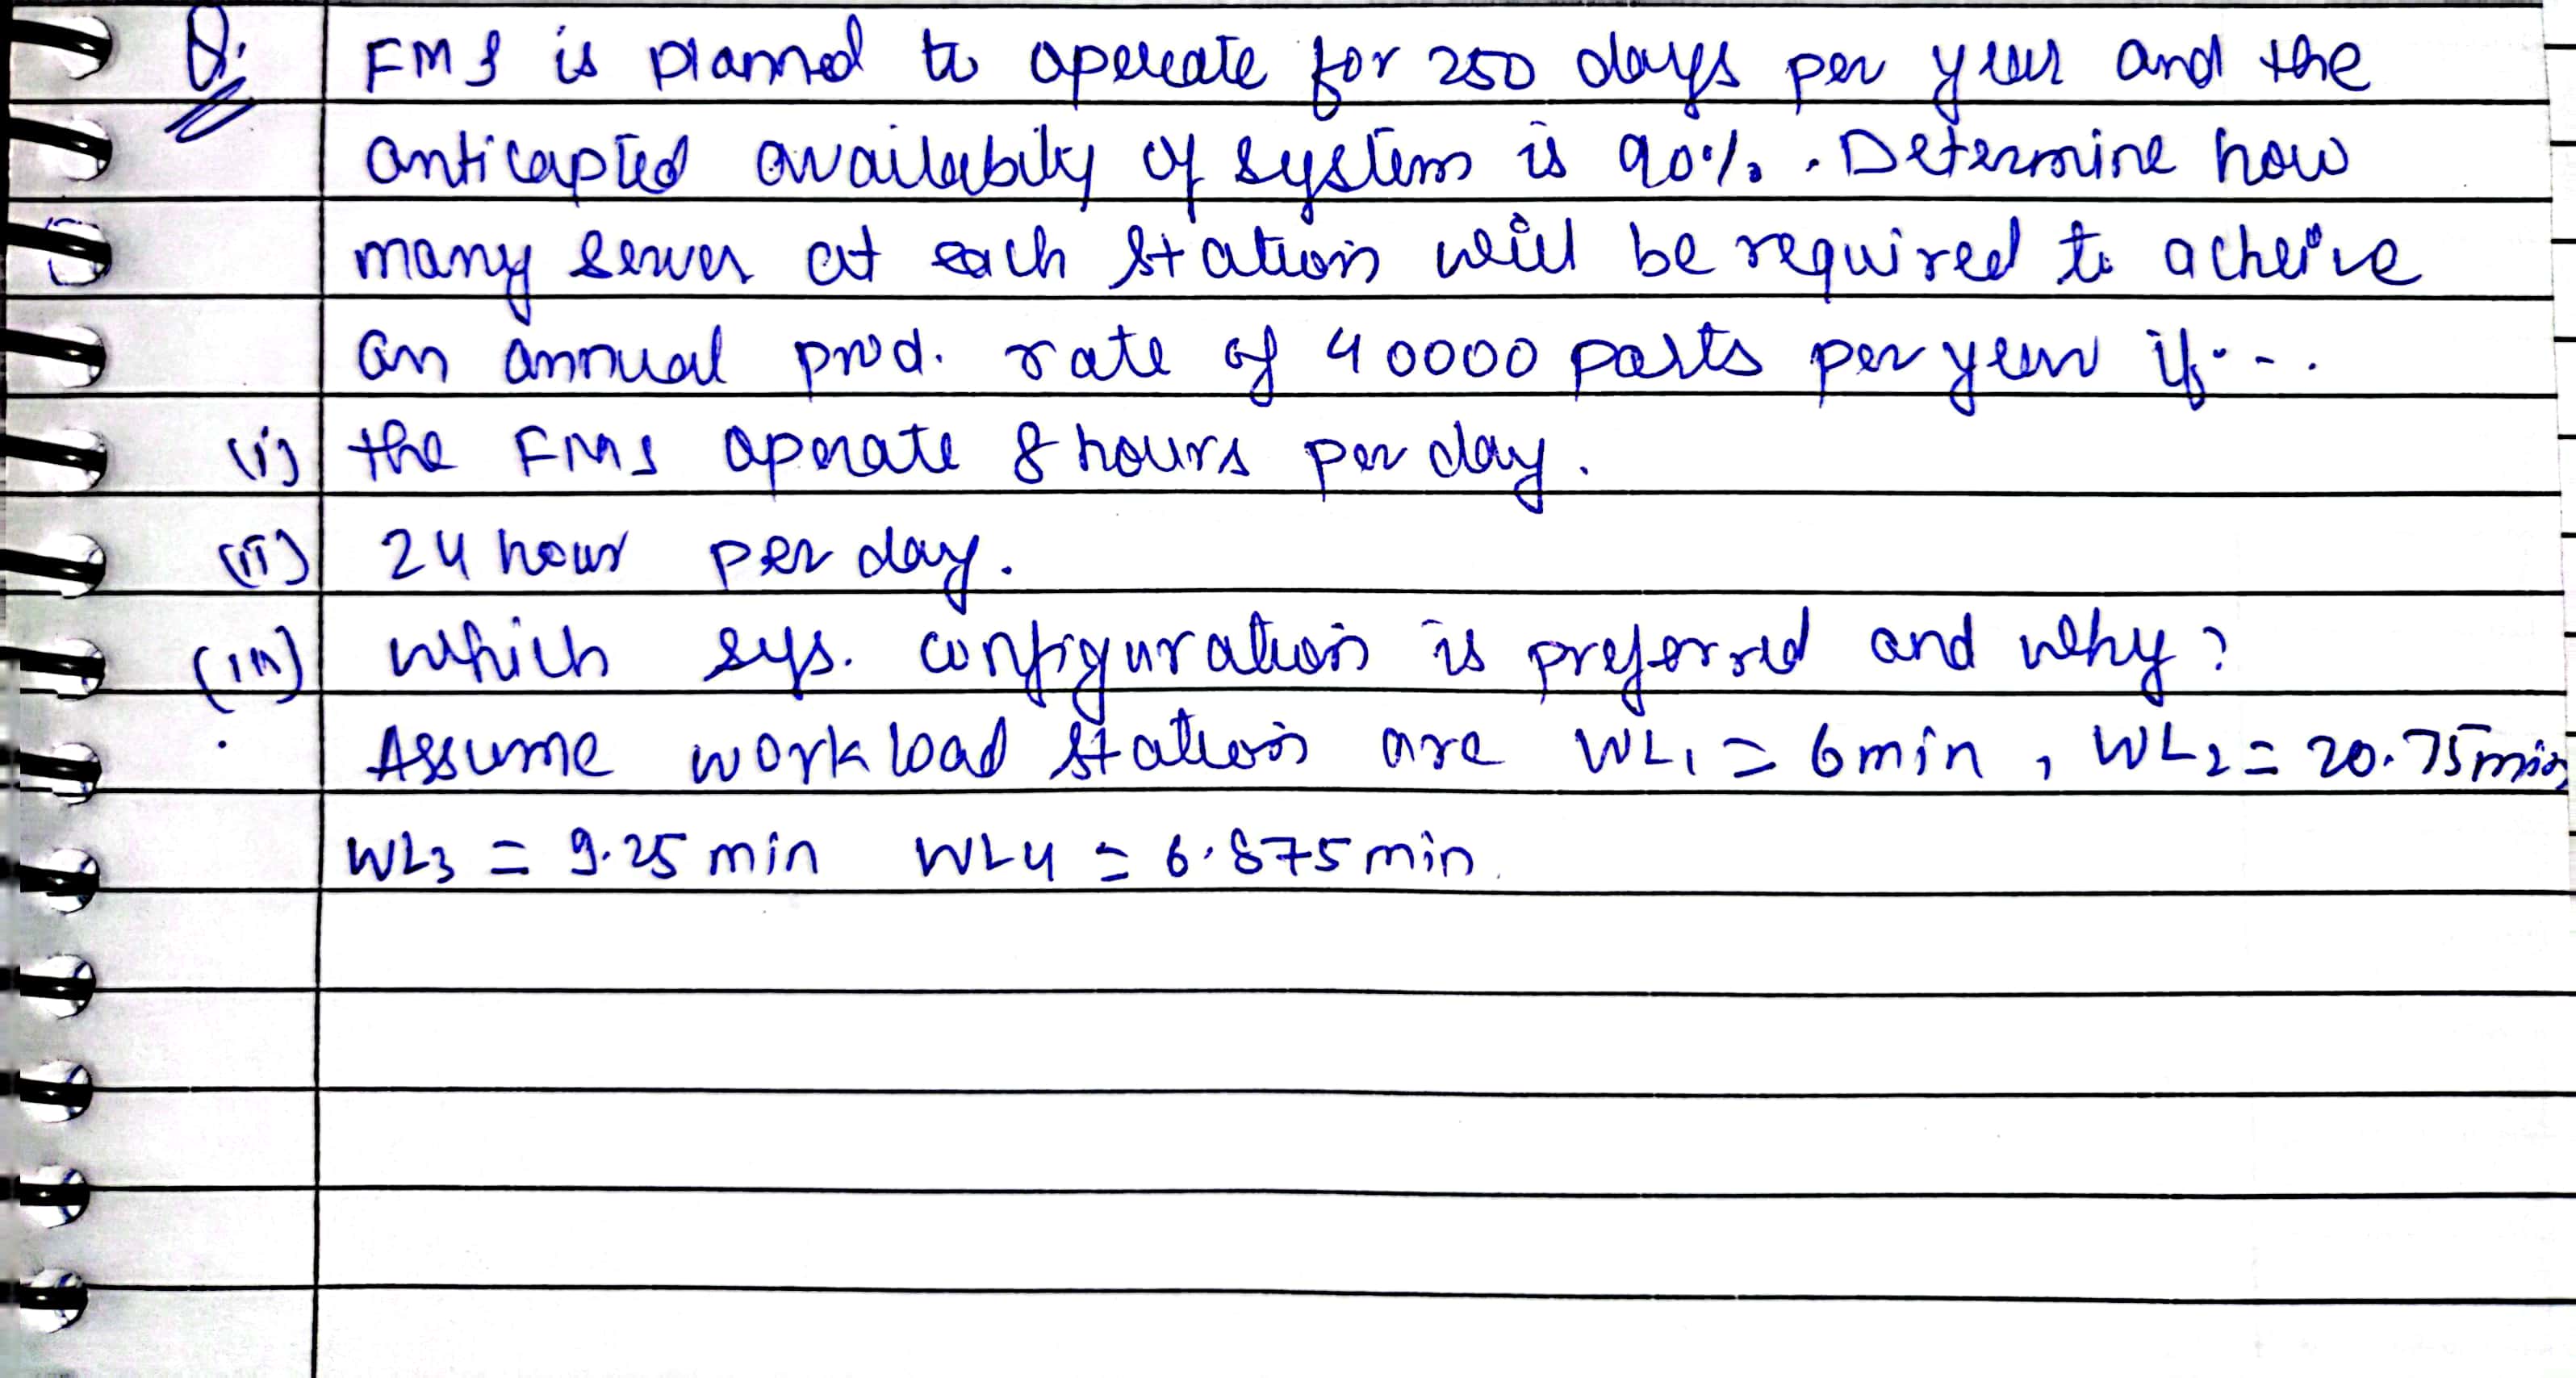 Q. FMS is planned to operate for 250 days per year and the
anticapted availability of system is 90%. Determine how
many server at each station will be required to acheive
an annual prod. rate of 40000 parts per year if...
(i) the FMS operate 8 hours per day.
(ii) 24 hour per day.
(iii) which sys. configuration is preferred and why?
Assume work load station are WL1 = 6 min, WL2 = 20.75 min
WL3 = 9.25 min WL4 = 6.875 min.